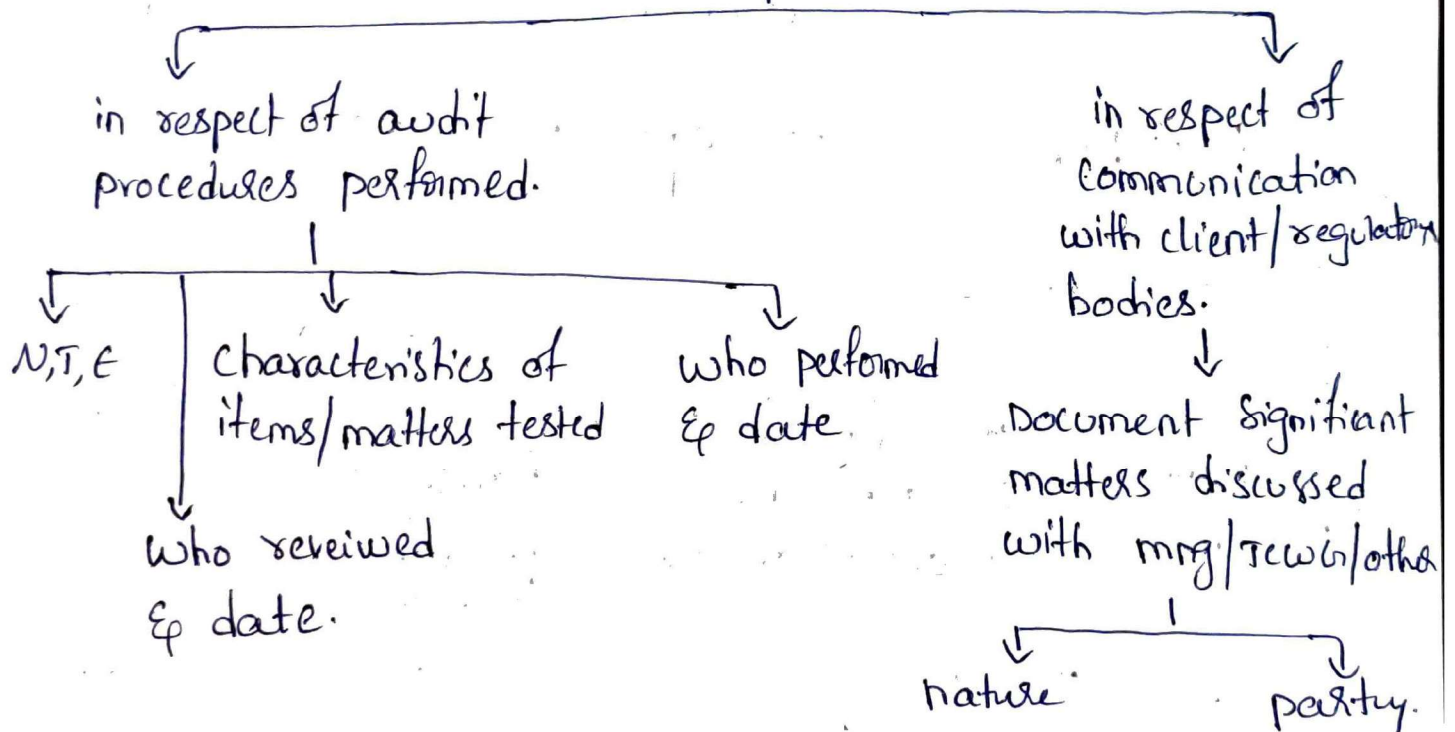 in respect of audit
procedures performed.
N,T,E
Characteristics of
items/matters tested
who performed
& date.
who reveiwed
& date.
in respect of
Communication
with client/regulatory
bodies.
Document Significant
matters discussed
with mng/TCWG/other
nature
party.